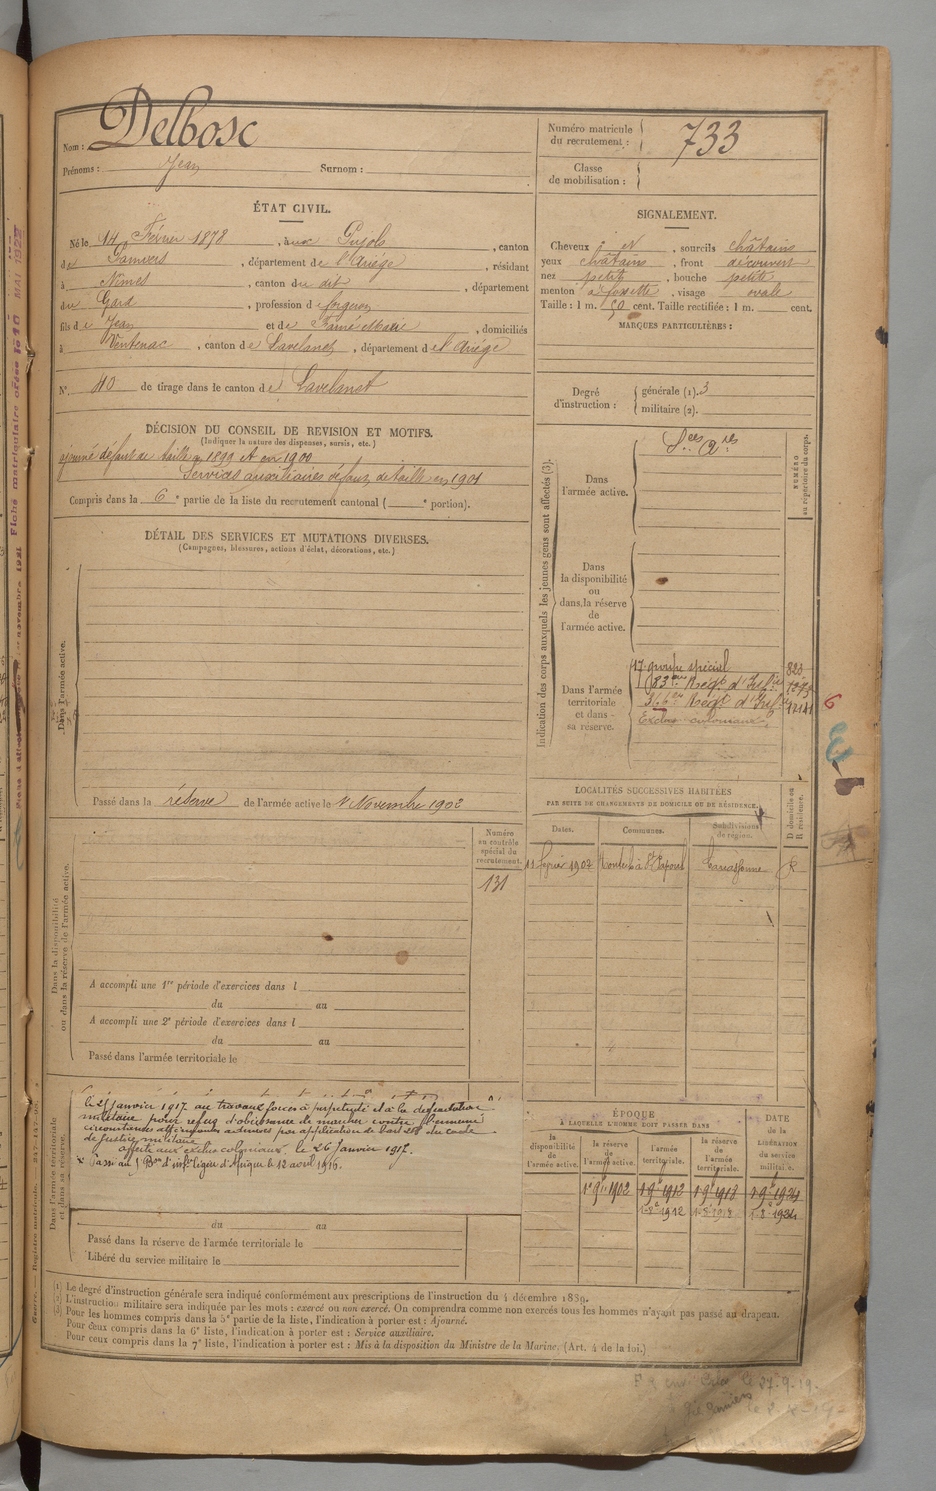 Nom : Delbosc
Prénoms : Jean Surnom :
Numéro matricule
du recrutement : 733
Classe
de mobilisation :
ÉTAT CIVIL.
Né le 14 Février 1878, à Pujols, canton
de Pamiers, département de l'Ariége, résidant
à Nîmes, canton du dit, département
du Gard, profession de
fils de Jean et de Marie, domiciliés
à Ventenac, canton de Lavelanet, département de l'Ariége
N° 40 de tirage dans le canton de Lavelanet
SIGNALEMENT.
Cheveux et, sourcils châtains
yeux châtains, front découvert
nez petit, bouche petite
menton à fossette, visage ovale
Taille : 1 m. 50 cent. Taille rectifiée : 1 m. cent.
MARQUES PARTICULIÈRES :
Degré
d'instruction :
générale (1). 3
militaire (2).
DÉCISION DU CONSEIL DE REVISION ET MOTIFS.
(Indiquer la nature des dispenses, sursis, etc.)
ajourné défaut de taille en 1899 et en 1900
Services auxiliaires défaut de taille en 1901
Compris dans la 6e partie de la liste du recrutement cantonal ( e portion).
DÉTAIL DES SERVICES ET MUTATIONS DIVERSES.
(Campagnes, blessures, actions d'éclat, décorations, etc.)
Dans l'armée active.
Passé dans la réserve de l'armée active le 1er Novembre 1902
Indication des corps auxquels les jeunes gens sont affectés (3).
NUMÉRO
au répertoire du corps.
Dans
l'armée active.
Dans
la disponibilité
ou
dans la réserve
de
l'armée active.
Dans l'armée
territoriale
et dans
sa réserve.
17 groupe spécial 823
83eme Régt d'Infie
Régt d'Infie
Exclus coloniaux
LOCALITÉS SUCCESSIVES HABITÉES
PAR SUITE DE CHANGEMENTS DE DOMICILE OU DE RÉSIDENCE.
D domicile ou
R résidence.
Dates.
Communes.
Subdivisions
de région.
février 1902 à St Papoul Carcassonne R
Numéro
au contrôle
spécial du
recrutement.
131
Dans la disponibilité
ou dans la réserve de l'armée active.
A accompli une 1re période d'exercices dans l
du au
A accompli une 2e période d'exercices dans l
du au
Passé dans l'armée territoriale le
Dans l'armée territoriale
et dans sa réserve.
le 25 janvier 1917 aux travaux forcés à perpétuité et à la dégradation
militaire pour refus d'obéissance de marcher contre l'ennemi
circonstances atténuantes admises par application de l'art du code
de justice militaire
affecté aux exclus coloniaux le 26 janvier 1917.
Passé au 5 Bon d'infie légère d'Afrique le 12 avril 1916.
du au
Passé dans la réserve de l'armée territoriale le
Libéré du service militaire le
ÉPOQUE
À LAQUELLE L'HOMME DOIT PASSER DANS
la
disponibilité
de
l'armée active.
la réserve
de
l'armée active.
l'armée
territoriale.
la réserve
de
l'armée
territoriale.
DATE
de la
LIBÉRATION
du service
militaire.
1er 9bre 1902 1-9 1912 1-9 1918 1-9 1924
1912 1918 1924
(1) Le degré d'instruction générale sera indiqué conformément aux prescriptions de l'instruction du 4 décembre 1889.
(2) L'instruction militaire sera indiquée par les mots : exercé ou non exercé. On comprendra comme non exercés tous les hommes n'ayant pas passé au drapeau.
(3) Pour les hommes compris dans la 5e partie de la liste, l'indication à porter est : Ajourné.
Pour ceux compris dans la 6e liste, l'indication à porter est : Service auxiliaire.
Pour ceux compris dans la 7e liste, l'indication à porter est : Mis à la disposition du Ministre de la Marine. (Art. 4 de la loi.)
le 27-9-19.